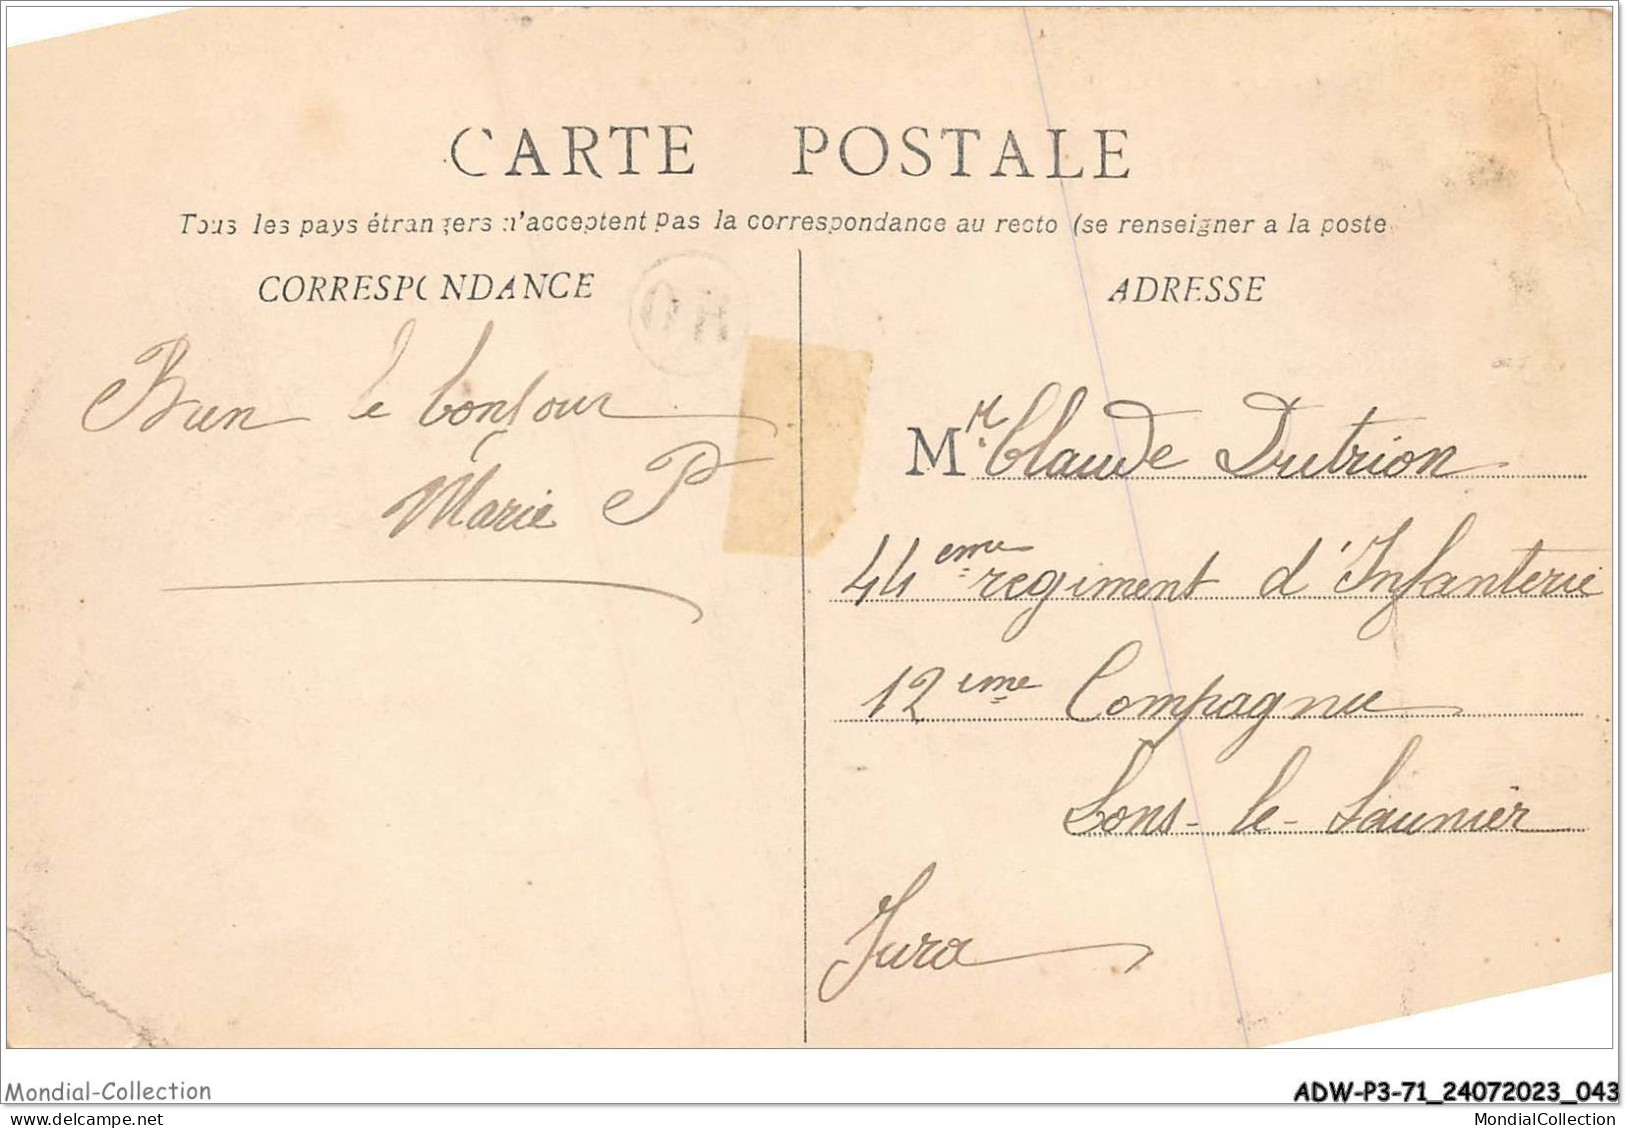 CARTE POSTALE
Tous les pays étrangers n'acceptent pas la correspondance au recto (se renseigner a la poste
CORRESPONDANCE
ADRESSE
Bien le bonjour
Marie P
Mr. Claude Dutrion
44eme regiment d'Infanterie
12eme Compagnie
Lons-le-Saunier
Jura
Mondial-Collection
ADW-P3-71_24072023_043
MondialCollection.com
MondialCollection